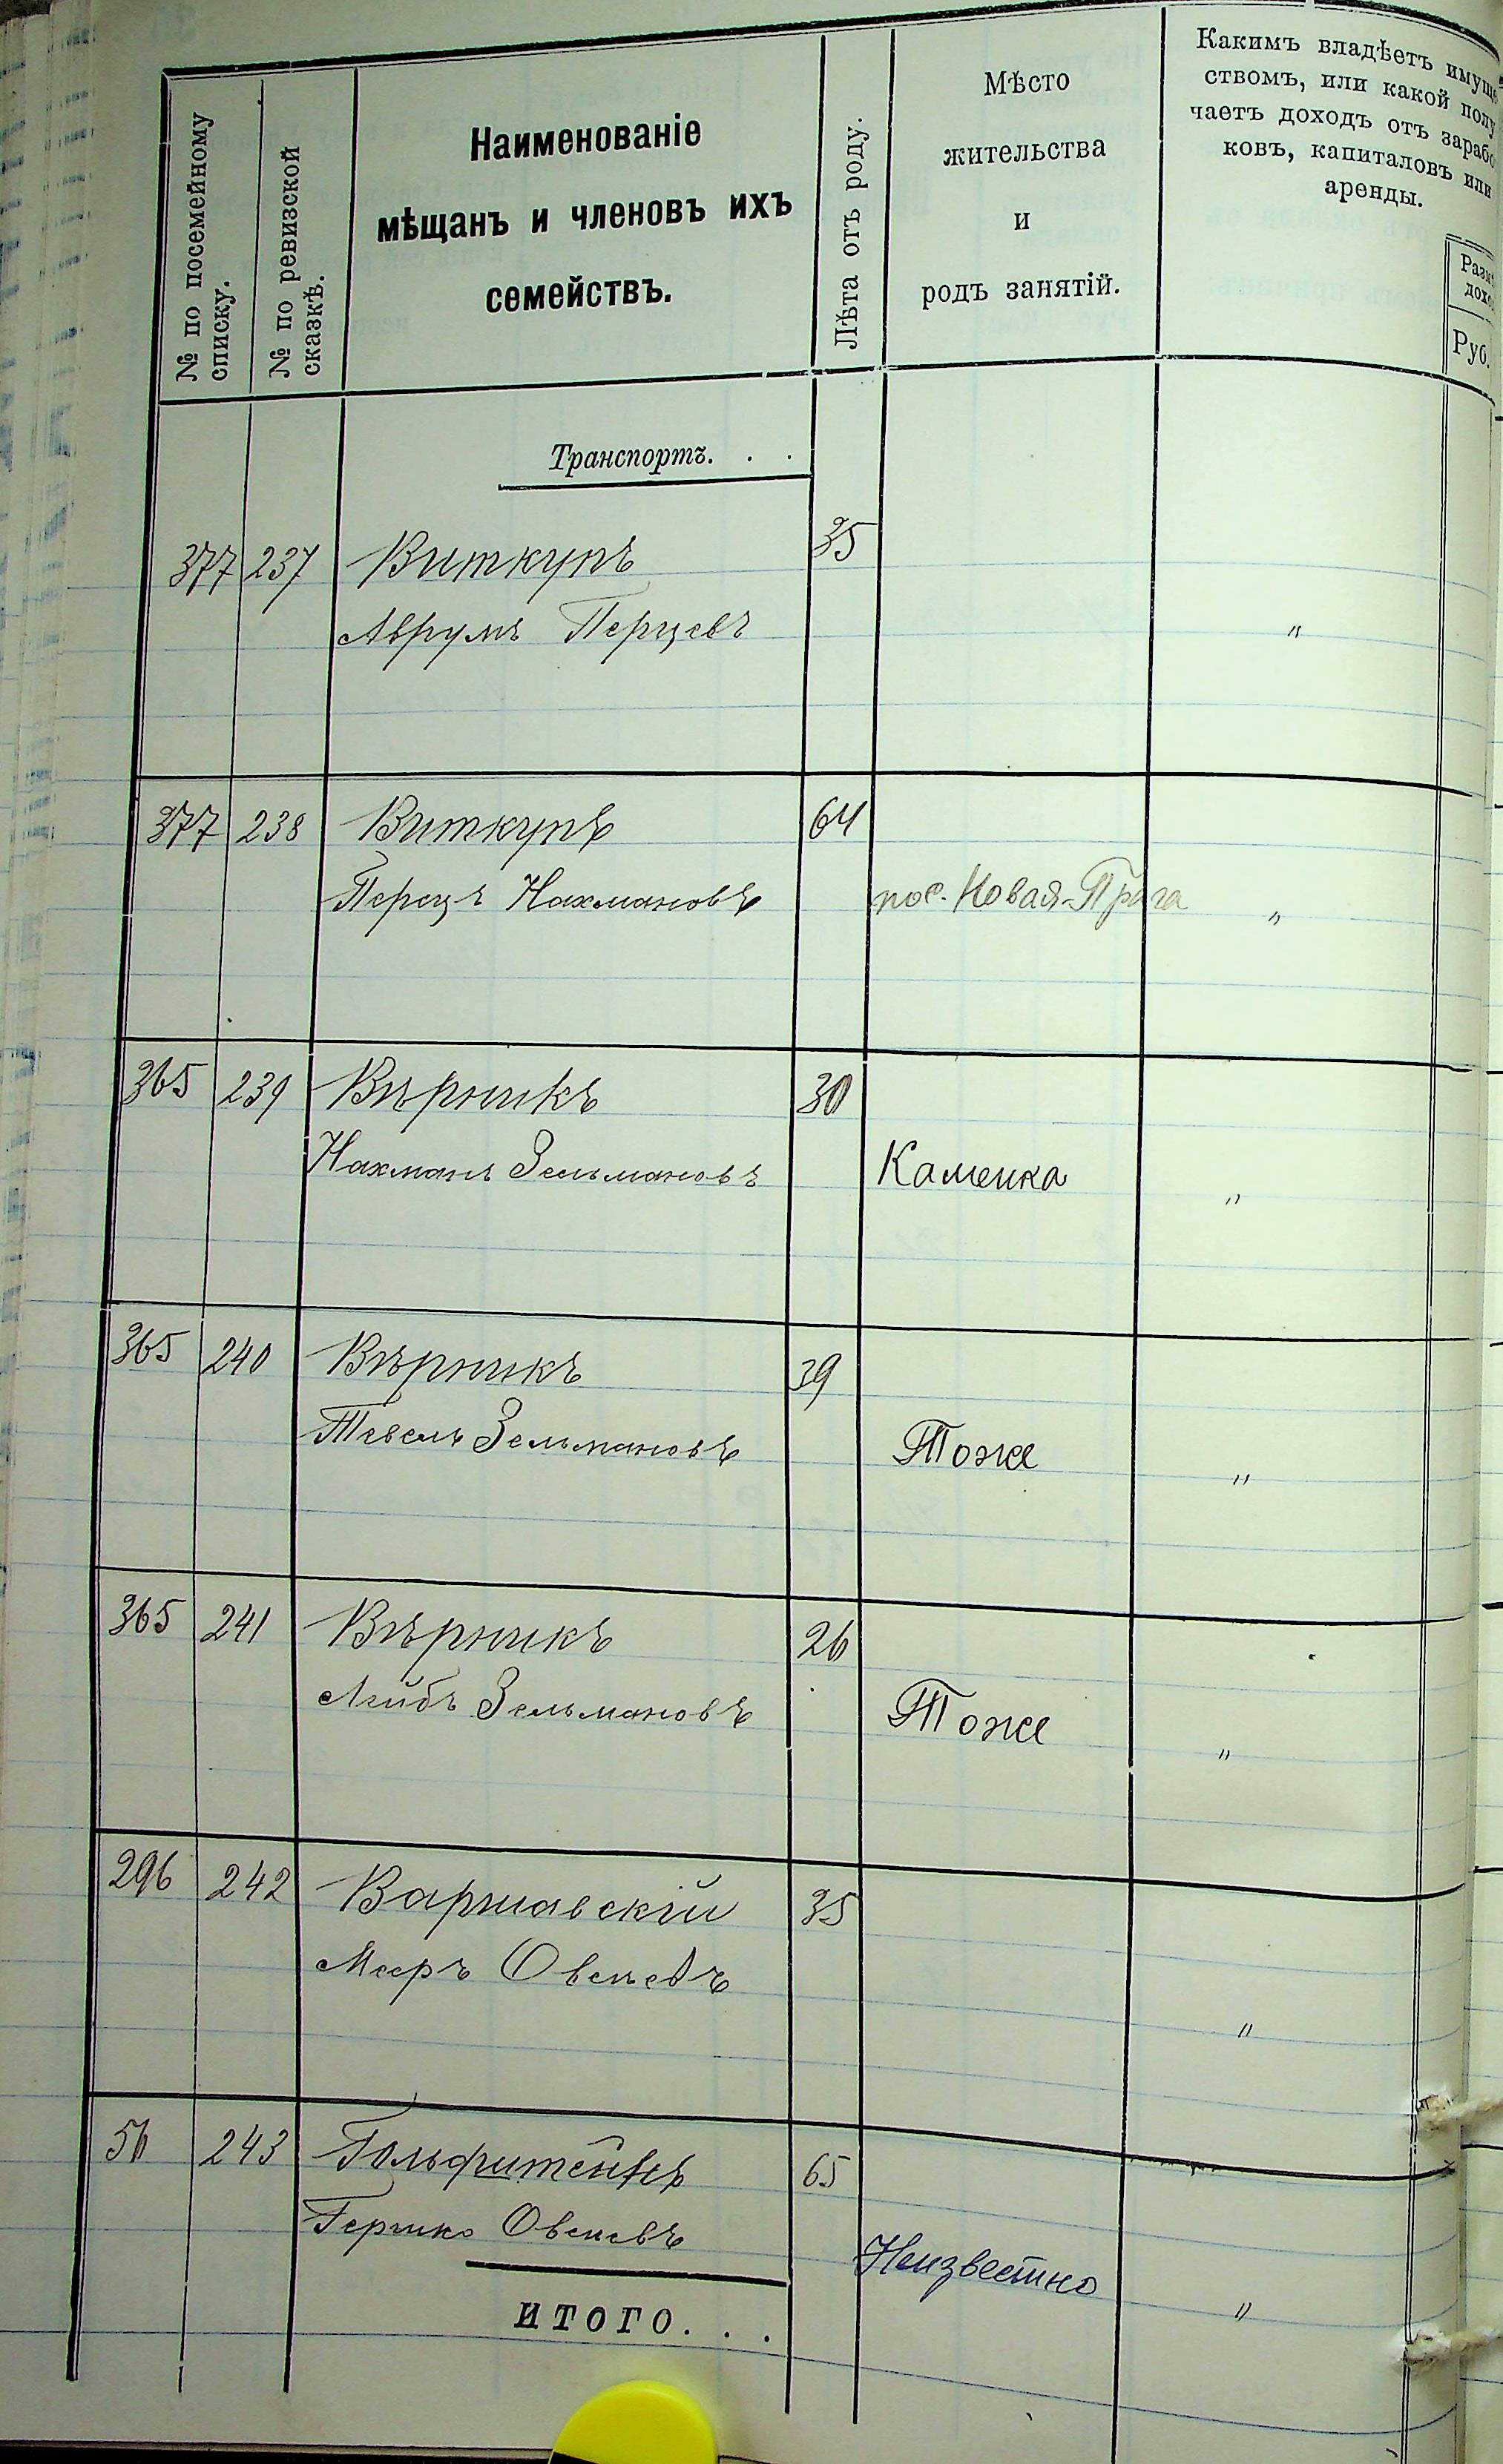 № по посемейному
списку.
№ по ревизской
сказкѣ.
Наименованіе
мѣщанъ и членовъ ихъ
семействъ.
Лѣта отъ роду.
Мѣсто
жительства
и
родъ занятій.
Какимъ владѣетъ имуще
ствомъ, или какой полу
чаетъ доходъ отъ зарабо
ковъ, капиталовъ или
аренды.
Разм
дохо
Руб.
Транспортъ. . .
377 237 Виткупъ 35
Аврумъ Перцевъ "
377 238 Виткупъ 64
Перецъ Нахмановъ пос. Новая-Прага "
365 239 Вѣрникъ 30
Нахманъ Зельмановъ Каменка "
365 240 Вѣрникъ 39
Тевель Зельмановъ Тоже "
365 241 Вѣрникъ 26
Лейбъ Зельмановъ Тоже "
296 242 Варшавскій 35
Мееръ "
243 65
Гершко Овсеевъ Неизвестно "
ИТОГО. . .